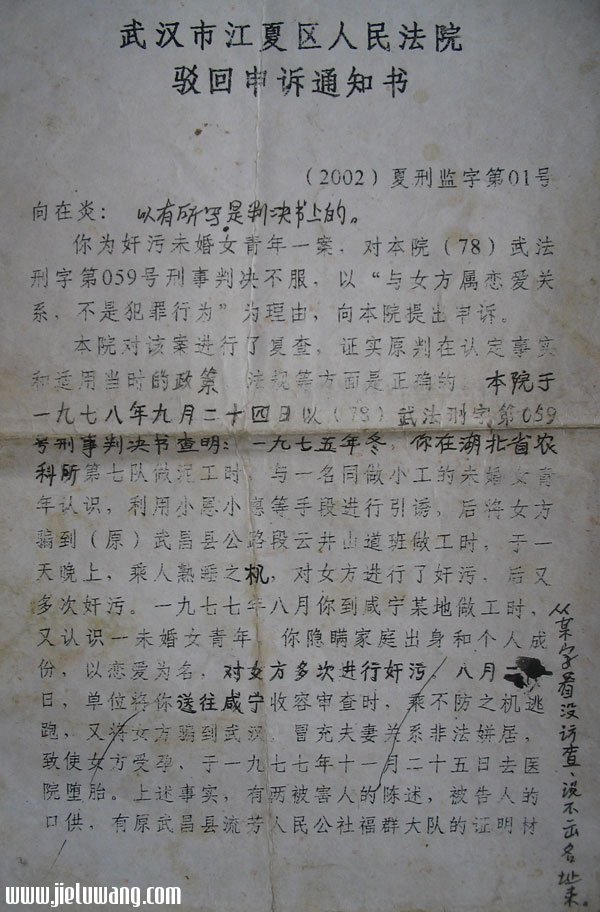 武汉市江夏区人民法院
驳回申诉通知书
(2002)夏刑监字第01号
向在炎： 以有所写是判决书上的。
你为奸污未婚女青年一案，对本院(78)武法
刑字第059号刑事判决不服，以“与女方属恋爱关
系，不是犯罪行为”为理由，向本院提出申诉。
本院对该案进行了复查，证实原判在认定事实
和适用当时的政策、法规等方面是正确的。本院于
一九七八年九月二十四日以(78)武法刑字第059
号刑事判决书查明：一九七五年冬，你在湖北省农
科所第七队做泥工时，与一名同做小工的未婚女青
年认识，利用小恩小惠等手段进行引诱，后将女方
骗到(原)武昌县公路段云井山道班做工时，于一
天晚上，乘人熟睡之机，对女方进行了奸污，后又
多次奸污。一九七七年八月你到咸宁某地做工时，
又认识一未婚女青年，你隐瞒家庭出身和个人成
份，以恋爱为名，对女方多次进行奸污，八月
日，单位将你送往咸宁收容审查时，乘不防之机逃
跑，又将女方骗到武汉，冒充夫妻关系非法姘居，
致使女方受孕，于一九七七年十一月二十五日去医
院堕胎。上述事实，有两被害人的陈述，被告人的
口供，有原武昌县流芳人民公社福群大队的证明材
从某字看没访查、说不出名址来。
www.jieluwang.com